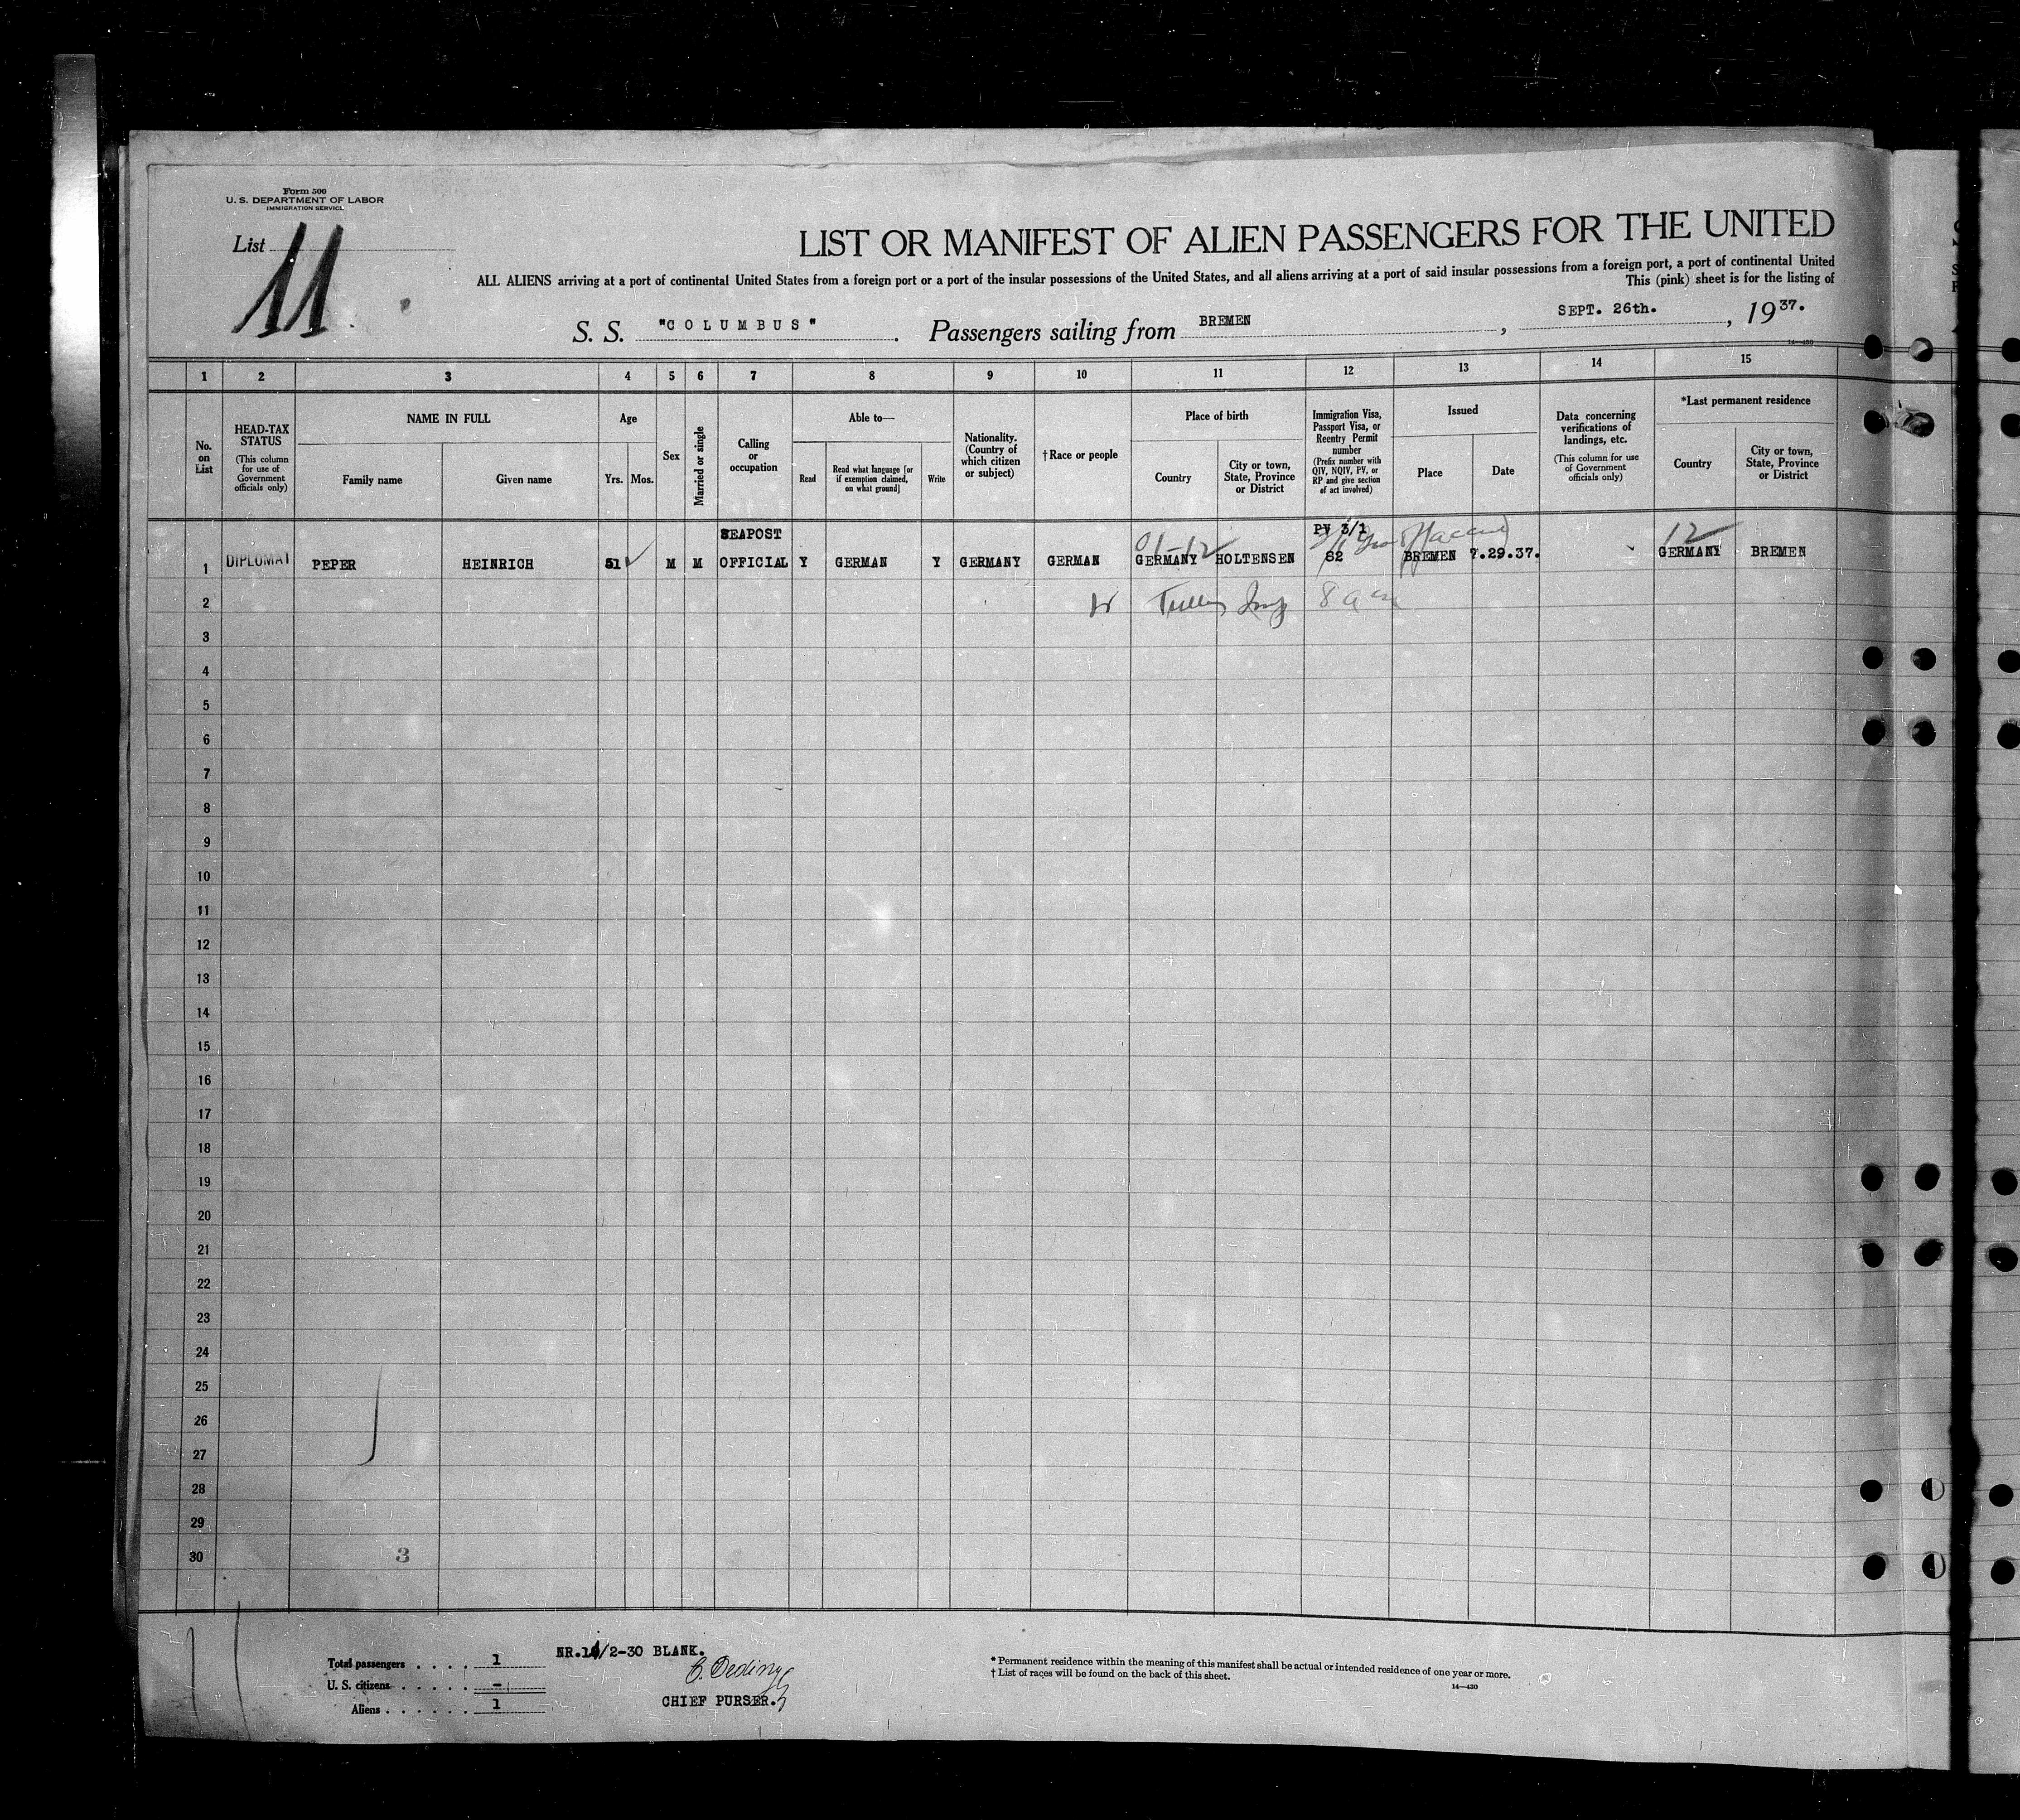 Form 500
U. S. DEPARTMENT OF LABOR
IMMIGRATION SERVICE
List 11
LIST OR MANIFEST OF ALIEN PASSENGERS FOR THE UNITED
ALL ALIENS arriving at a port of continental United States from a foreign port or a port of the insular possessions of the United States, and all aliens arriving at a port of said insular possessions from a foreign port, a port of continental United
This (pink) sheet is for the listing of
S. S. "COLUMBUS". Passengers sailing from BREMEN, SEPT. 26th., 1937.
14—430
1 2 3 4 5 6 7 8 9 10 11 12 13 14 15
No. on List
HEAD-TAX STATUS
(This column for use of Government officials only)
NAME IN FULL
Family name
Given name
Age
Yrs. Mos.
Sex
Married or single
Calling or occupation
Able to—
Read
Read what language [or if exemption claimed, on what ground]
Write
Nationality. (Country of which citizen or subject)
†Race or people
Place of birth
Country
City or town, State, Province or District
Immigration Visa, Passport Visa, or Reentry Permit number
(Prefix number with QIV, NQIV, PV, or RP and give section of act involved)
Issued
Place
Date
Data concerning verifications of landings, etc.
(This column for use of Government officials only)
*Last permanent residence
Country
City or town, State, Province or District
SEAPOST PV 3/1
01-12 12
1 DIPLOMAT PEPER HEINRICH 51 M M OFFICIAL Y GERMAN Y GERMANY GERMAN GERMANY HOLTENSEN 82 BREMEN 7.29.37. GERMANY BREMEN
2
3
4
5
6
7
8
9
10
11
12
13
14
15
16
17
18
19
20
21
22
23
24
25
26
27
28
29
30
3
Total passengers . . . . 1
U. S. citizens . . . . . –
Aliens . . . . . . 1
NR.11/2-30 BLANK.
CHIEF PURSER.
* Permanent residence within the meaning of this manifest shall be actual or intended residence of one year or more.
† List of races will be found on the back of this sheet.
14—430